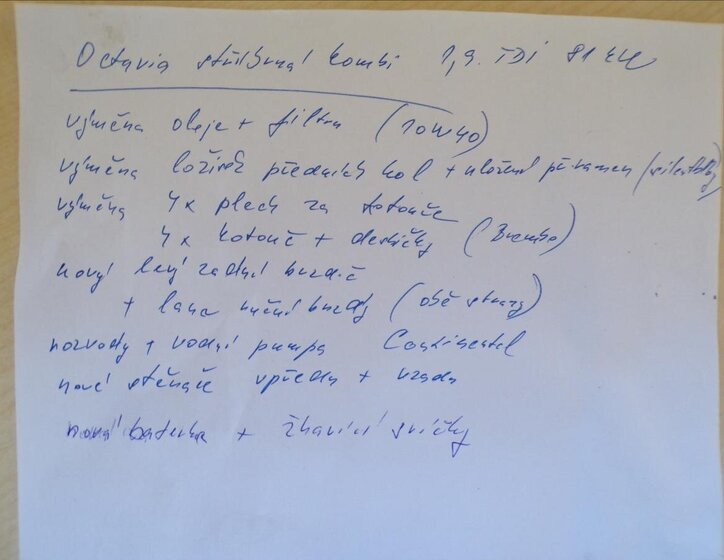 Octavia stříbrná kombi 1,9. TDI 81 kW
výměna oleje + filtru (10W40)
výměna ložisek předních kol + uložení přiramen (silentbloky)
výměna 4x plech za kotouče
4x kotouč + destičky (Brembo)
nový levý zadní brzdič
+ lana ruční brzdy (obě strany)
rozvody + vodní pumpa Continental
nové stěrače vpředu + vzadu
nová baterka + žhavící svíčky